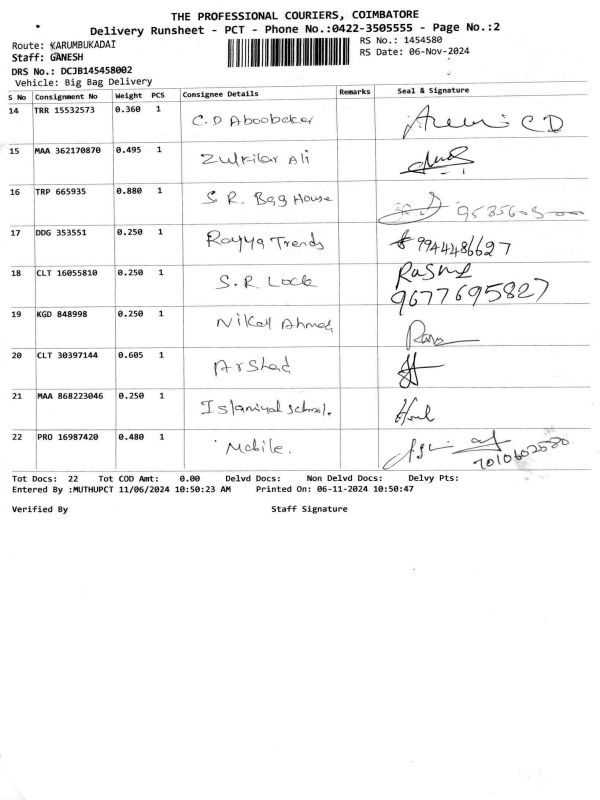 THE PROFESSIONAL COURIERS, COIMBATORE
Delivery Runsheet - PCT - Phone No.:0422-3505555 - Page No.:2
Route: KARUMBUKADAI RS No.: 1454580
Staff: GANESH RS Date: 06-Nov-2024
DRS No.: DCJB145458002
Vehicle: Big Bag Delivery
S No Consignment No Weight PCS Consignee Details Remarks Seal & Signature
14 TRR 15532573 0.360 1 C.D Aboobeker CD
15 MAA 362170870 0.495 1 Zulfikar Ali
16 TRP 665935 0.880 1 S.R. Bag House
17 DDG 353551 0.250 1 Rayya Trends 9944486627
18 CLT 16055810 0.250 1 S.R. Lock 9677695827
19 KGD 848998 0.250 1 Nikal Ahmed
20 CLT 30397144 0.605 1 Arshad
21 MAA 868223046 0.250 1 Islamiyah School.
22 PRO 16987420 0.480 1 Mobile. 7010602580
Tot Docs: 22 Tot COD Amt: 0.00 Delvd Docs: Non Delvd Docs: Delvy Pts:
Entered By :MUTHUPCT 11/06/2024 10:50:23 AM Printed On: 06-11-2024 10:50:47
Verified By Staff Signature